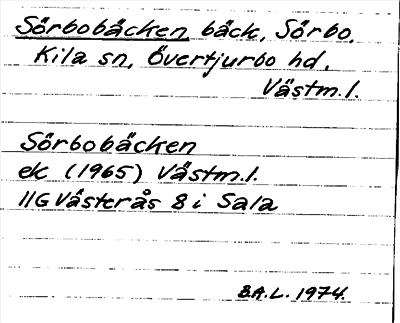 Sörbobäcken, bäck, Sörbo,
Kila sn, Övertjurbo hd,
Västm.l.
Sörbobäcken
ek (1965) Västm.l.
11G Västerås 8 i Sala
B.A.L. 1974.